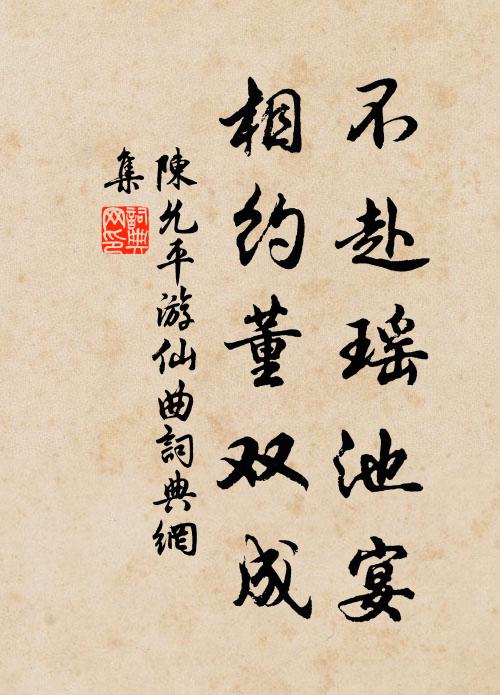 不赴瑶池宴
相约董双成
陳允平游仙曲詞典網
集
詞典网印